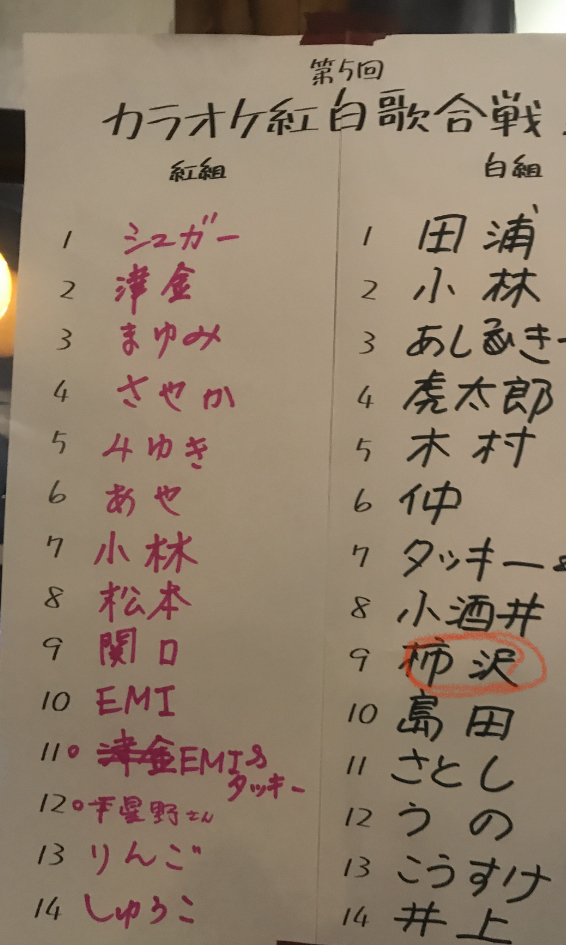 第5回
カラオケ紅白歌合戦
紅組
1 シュガー
2 津金
3 まゆみ
4 さやか
5 みゆき
6 あや
7 小林
8 松本
9 関口
10 EMI
11 EMI&
タッキー
12 星野さん
13 りんご
14 しゅうこ
白組
1 田浦
2 小林
3
4 虎太郎
5 木村
6 仲
7 タッキー&
8 小酒井
9 柿沢
10 島田
11 さとし
12 うの
13 こうすけ
14 井上